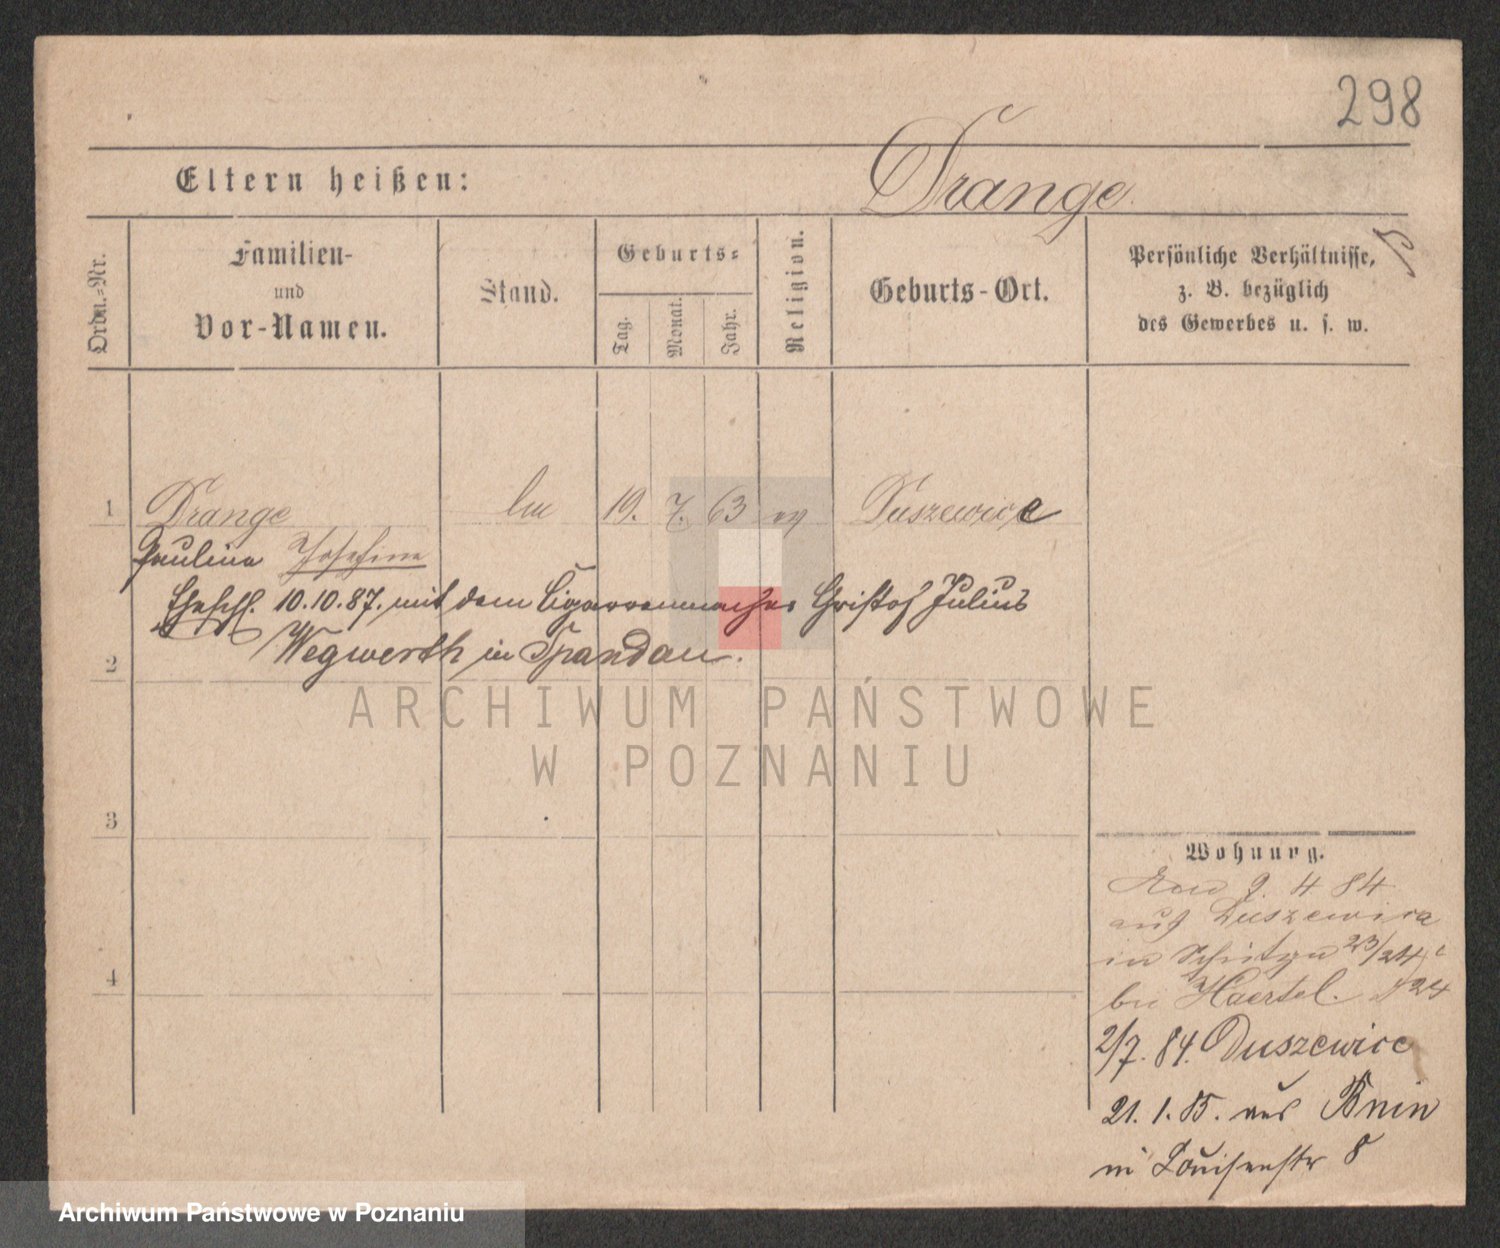 298
Eltern heißen:
Drange
Ordn.-Nr.
Familien-
und
Vor-Namen.
Stand.
Geburts-
Tag.
Monat.
Jahr.
Religion.
Geburts-Ort.
Persönliche Verhältnisse,
z. B. bezüglich
des Gewerbes u. s. w.
1 Drange 19. 7. 63 ev Duszewice
Paulina Josefine
Eheschl. 10.10.87. mit dem Cigarrenmacher Christof Julius
Wegwerth in Spandau.
2
ARCHIWUM PAŃSTWOWE
W POZNANIU
3
4
Wohnung.
9. 4 84
aus Duszewica
in 23/24
bei Haertel. 24
2/7. 84. Duszewice
21. 1. 85. aus Bnin
in Louisenstr 8
Archiwum Państwowe w Poznaniu